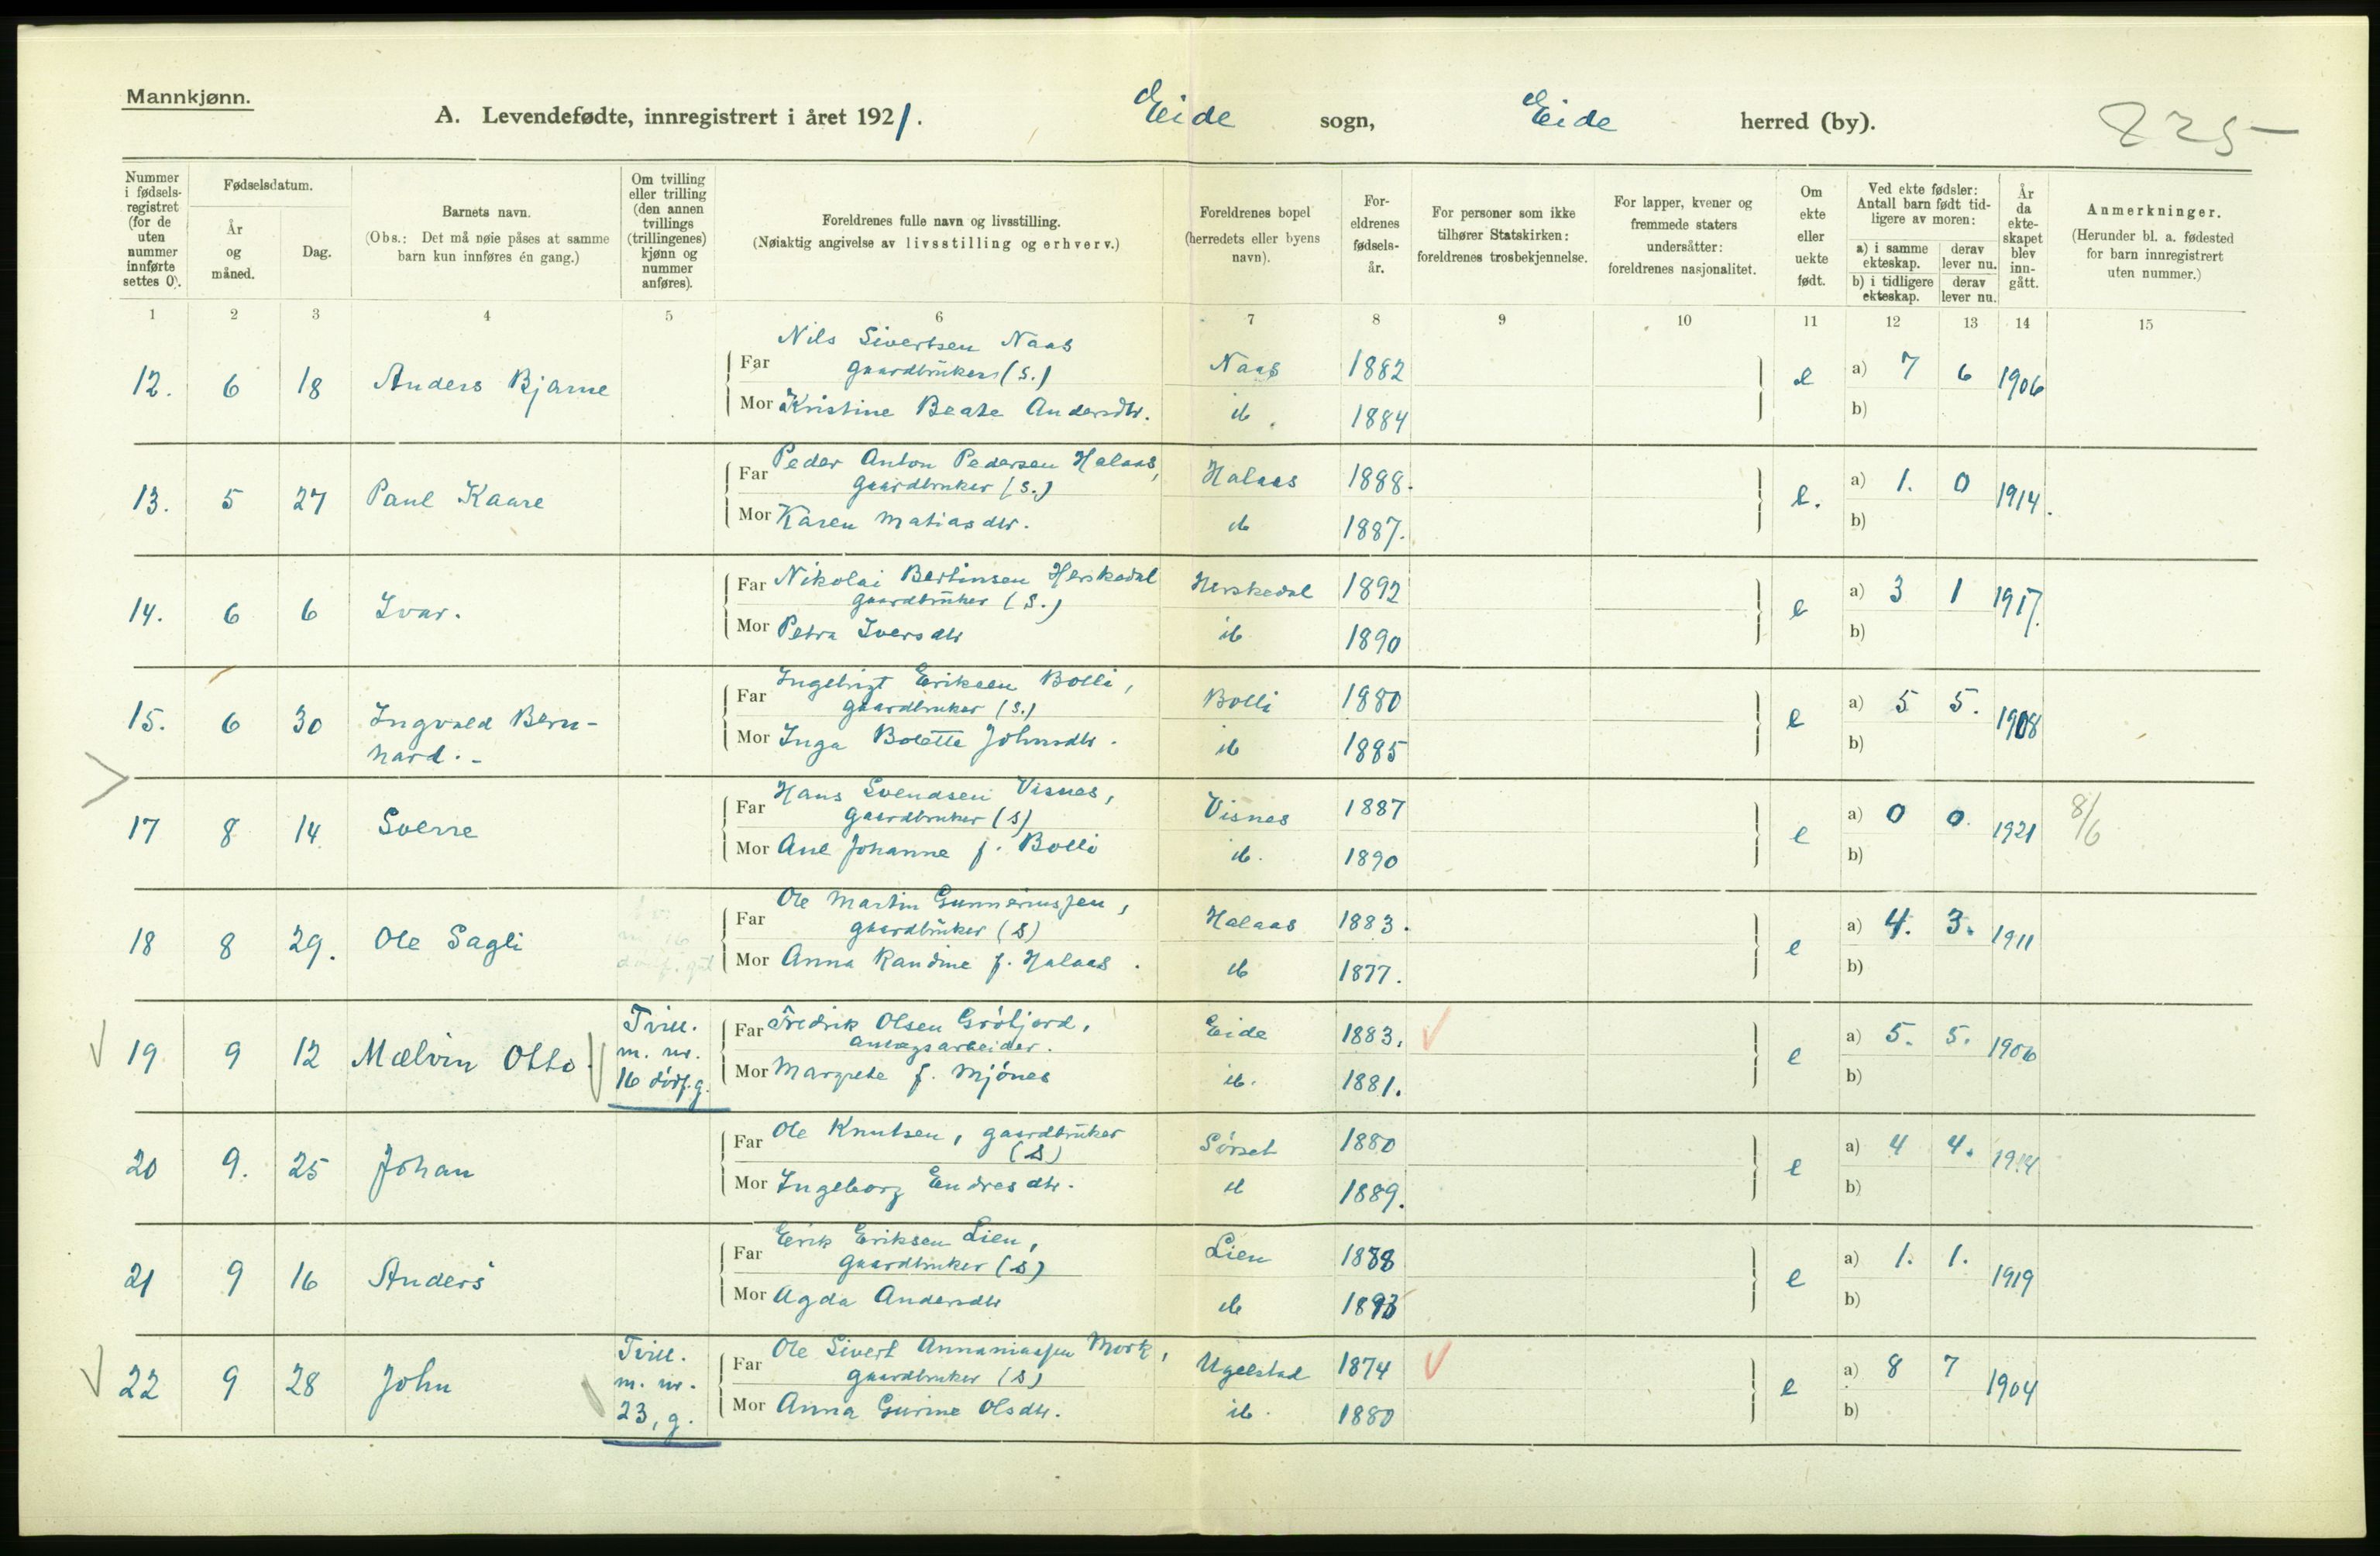 Mannkjønn.
A. Levendefødte, innregistrert i året 1921. Eide sogn, Eide herred (by). 225
Nummer i fødselsregistret (for de uten nummer innførte settes 0).
Fødselsdatum.
År og måned.
Dag.
Barnets navn.
(Obs.: Det må nøie påses at samme barn kun innføres én gang.)
Om tvilling eller trilling (den annen tvillings (trillingenes) kjønn og nummer anføres).
Foreldrenes fulle navn og livsstilling.
(Nøiaktig angivelse av livsstilling og erhverv.)
Foreldrenes bopel (herredets eller byens navn).
Foreldrenes fødselsår.
For personer som ikke tilhører Statskirken: foreldrenes trosbekjennelse.
For lapper, kvener og fremmede staters undersåtter: foreldrenes nasjonalitet.
Om ekte eller uekte født.
Ved ekte fødsler: Antall barn født tidligere av moren:
a) i samme ekteskap. derav lever nu.
b) i tidligere ekteskap. derav lever nu.
År da ekteskapet blev inngått.
Anmerkninger.
(Herunder bl. a. fødested for barn innregistrert uten nummer.)
1 2 3 4 5 6 7 8 9 10 11 12 13 14 15
Nils Sivertsen Naas
12. 6 18 Anders Bjarne Far gaardbruker (S.) Naas 1882 e a) 7 6 1906
Mor Kristine Beate Andersdtr. ib. 1884 b)
Far Peder Anton Pedersen Halaas,
13. 5 27 Paul Kaare gaardbruker (S.) Halaas 1888. e. a) 1. 0 1914.
Mor Karen Matiasdtr. ib 1887. b)
Far Nikolai Bertinsen Herskedal
14. 6 6 Ivar. gaardbruker (S.) Herskedal 1892 e a) 3 1 1917.
Mor Petra Iversdtr ib 1890 b)
Far Ingebrigt Eriksen Bolli,
15. 6 30 Ingvald Bern- gaardbruker (S.) Bolli 1880 e a) 5 5. 1908
hard.- Mor Inga Bolette Johnsdtr. ib 1885 b)
Far Hans Svendsen Visnes,
17 8 14 Sverre gaardbruker (S) Visnes 1887 e a) 0 0. 1921 8/6
Mor Ane Johanne f. Bolli ib. 1890 b)
Far Ole Martin Gunneriussen,
18 8 29. Ole Sagli gaardbruker (S) Halaas 1883. e a) 4. 3. 1911
Mor Anna Randine f. Halaas. ib 1877. b)
Tvill. Far Fredrik Olsen
19 9 12 Mælvin Otto. m. nr. anlægsarbeider. Eide 1883. e a) 5. 5. 1906
16 dødf. g. Mor Margrete f. Mjónes ib. 1881. b)
Far Ole Knutsen, gaardbruker
20 9. 25 Johan (S) Sórset 1880 e a) 4 4. 1914
Mor Ingeborg Endresdtr. ib 1889. b)
Far Erik Eriksen Lien,
21 9 16 Anders gaardbruker (S) Lien 1888 e a) 1. 1. 1919
Mor Agda Andersdtr ib 1893 b)
Tvill. Far Ole Sivert Annaniassen Mork,
22 9 28 John m. nr. gaardbruker (S) Ugelstad 1874 e a) 8 7 1904
23, g. Mor Anna Gurine Olsdtr. ib. 1880 b)